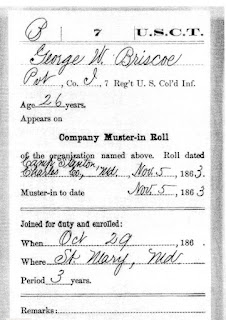 B | 7 | U.S.C.T.
George W. Briscoe
Pvt, Co. I, 7 Reg't U. S. Col'd Inf.
Age 26 years.
Appears on
Company Muster-in Roll
of the organization named above. Roll dated
Camp Stanton,
Charles Co, Md. Nov. 5, 1863.
Muster-in to date Nov. 5, 1863
Joined for duty and enrolled:
When Oct 29, 186 .
Where St. Mary, Md.
Period 3 years.
Remarks: